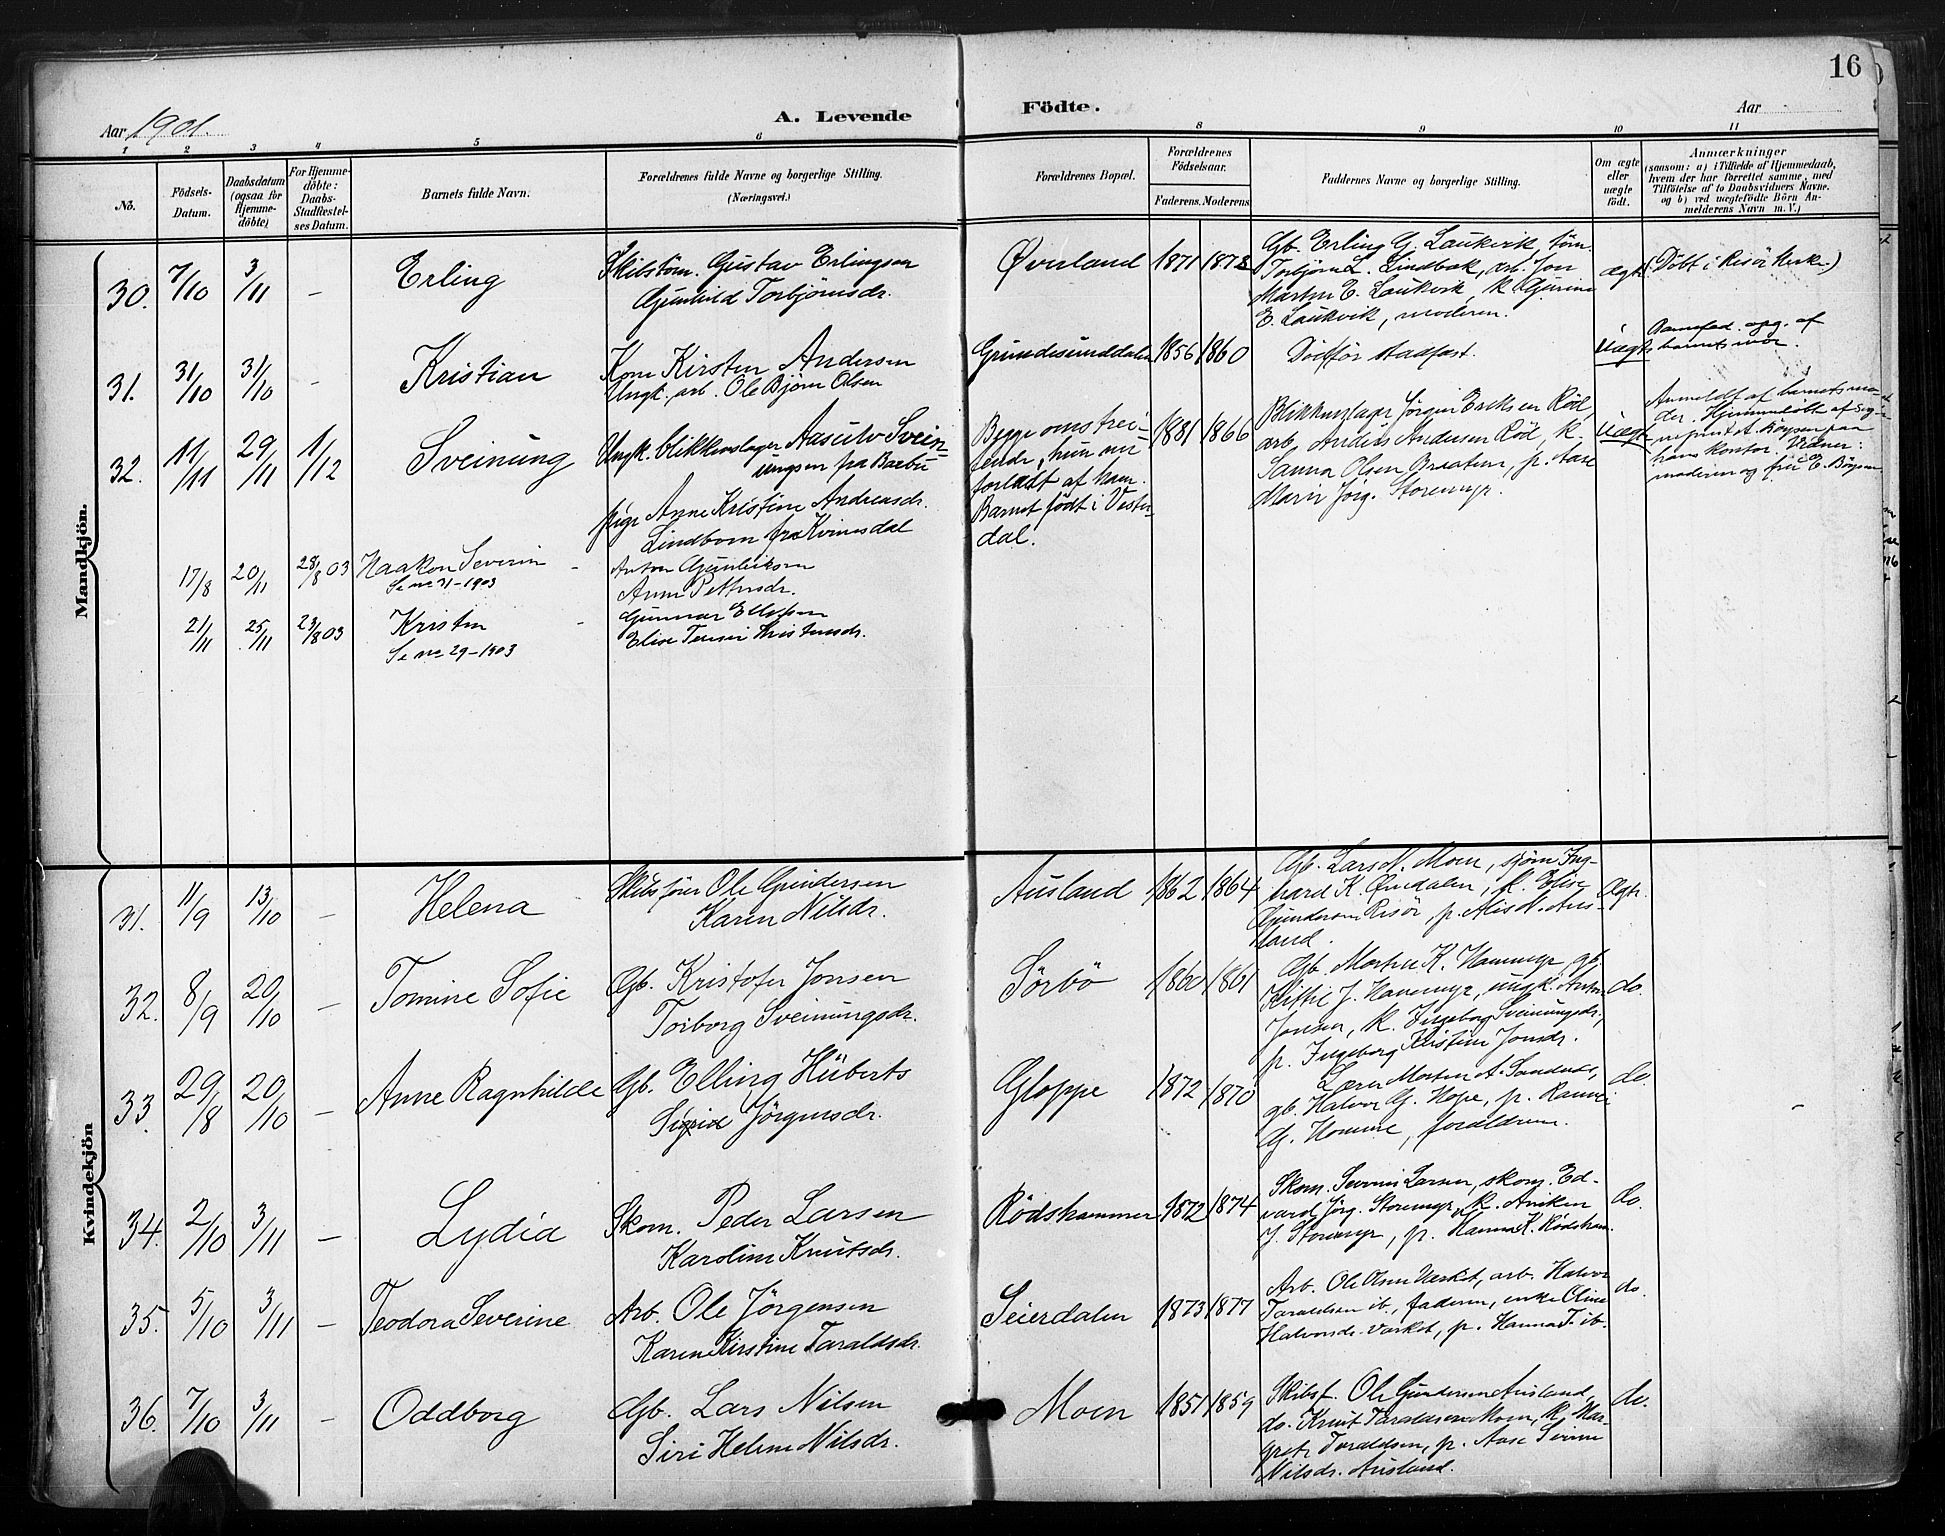 16
Aar 1901.
A. Levende Födte.
Aar
1 2 3 4 5 6 8 9 10 11
No.
Födsels-
Datum.
Daabsdatum
(ogsaa for
Hjemme-
döbte)
For Hjemme-
döbte:
Daabs-
Stadfæstel-
ses Datum.
Barnets fulde Navn.
Forældrenes fulde Navne og borgerlige Stilling.
(Næringsvei.)
Forældrenes Bopæl.
Forældrenes
Födselsaar.
Faderens. Moderens.
Faddernes Navne og borgerlige Stilling.
Om ægte
eller
uægte
födt.
Anmærkninger
(saasom: a) i Tilfælde af Hjemmedaab,
hvem der har forrettet samme, med
Tilföielse af to Daabsvidners Navne.
og b) ved uægtefödte Börn An-
melderens Navn m. V.)
Mandkjön.
30. 7/10 3/11 - Erling
Skibstöm. Gustav Erlingsen
Gunhild Torbjörnsdr.
Øverland 1871 1873
Gb. Erling G. Laukvik, töm.
Torbjörn L. Lindbak, arb. Jon
Martin E. Laukvik, k. Gurine
E. Laukvik, moderen.
ægte (Döbt i Risör kirke.)
31. 31/10 31/10 - Kristian
Kone Kirsten Andersen
Ungk. arb. Ole Björn Olsen
Grundesunddalen 1856 1860
Död för stadfæst.
Uægte
Barnefad. opg. af
barnets mor.
32. 11/11 29/11 1/12 Sveinung
Ungk. blikkenslager Aasulv Svein-
ungsen fra Barbu
pige Anne Kristine Andreasdr.
Lindbom fra Kvinesdal
Begge omstrei-
fende, hun nu
forladt af ham.
Barnet födt i Vester-
dal.
1881 1866
Blikkenslager Jörgen Eriksen Röd
arb. Anders Andersen Röd, k.
Sanna Olsen Braaten, p. Aase
Marie Jörg. Storemyr.
Uægte
Anmeldt af barnets mo-
der. Hjemmedöbt af sog-
neprest A. Böysen paa
hans kontor. Vidner:
moderen og frue E. Böysen
17/8 20/11 28/8 03 Haakon Severin -
Se no 21-1903
Anton Gunleiksen
Anne Pettersdr.
21/11 25/11 23/8 03 Kristen -
Se no 29-1903
Gunnar Ellefsen
Elise Tensie Kristensdr.
Kvindekjön
31. 11/9 13/10 - Helena
Skibsförer Ole Gundersen
Karen Nilsdr.
Ausland 1862 1864
Gb. Lars N. Moen, sjöm Ing-
vard K. Øvedalen, k. Elise
Gundersen Risör, p. Alis N. Aus-
land.
Ægte.
32. 8/9 20/10 - Tomine Sofie
Gb. Kristofer Jonsen
Torborg Sveinungsdr.
Sörbö 1860 1861
Gb. Morten K. Hammyr, gb.
Kittil J. Havemyr, ungk. Anton
Jonsen, k. Ingeborg Sveinungsdr.,
p. Ingeborg Kristine Jonsdr.
do.
33. 29/8 20/10 - Anne Ragnhilde
Gb. Elling Huberts
Sigrid Jörgensdr.
Gloppe 1872 1870
Lærer Morten A. Sandnes,
gb. Halvor G. Hope, p. Ranvei
G. Homme, forældrene.
do.
34. 2/10 3/11 - Lydia
Skom. Peder Larsen
Karoline Knutsdr.
Rödshammer 1872 1874
Skom. Severin Larsen, skom. Ed-
vard Jörg. Storemyr, k. Aniken
J. Storemyr, p. Hanna K. Rödsham.
do.
35. 5/10 3/11 - Teodora Severine
Arb. Ole Jörgensen
Karen Kirstine Taraldsdr.
Seierdalen 1873 1877
Arb. Ole Olsen Værket, arb. Halvor
Taraldsen ib., faderen, enke Oline
Halvorsdr. Værket, p. Hanna T. ib.
do.
36. 7/10 3/11 - Oddborg
Gb. Lars Nilsen
Siri Helene Nilsdr.
Moen 1851 1859
Skibsf. Ole Gundersen Ausland,
do. Knut Taraldsen Moen, k. Mar-
grete Taraldsen, p. Aase Sevrine
Nilsdr. Ausland.
do.